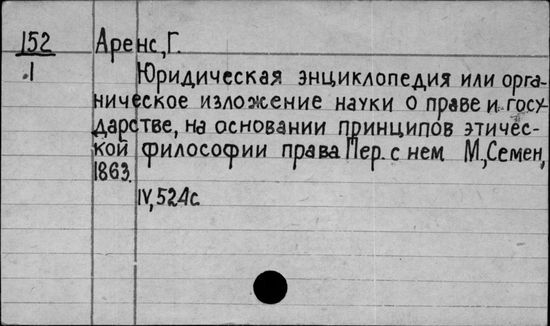 152
1
Аренс, Г.
Юридическая энциклопедия или орга-
ническое изложение науки о праве и госу-
дарстве, на основании принципов этичес-
кой философии права Пер. с нем М., Семен,
1863.
IV, 524с.